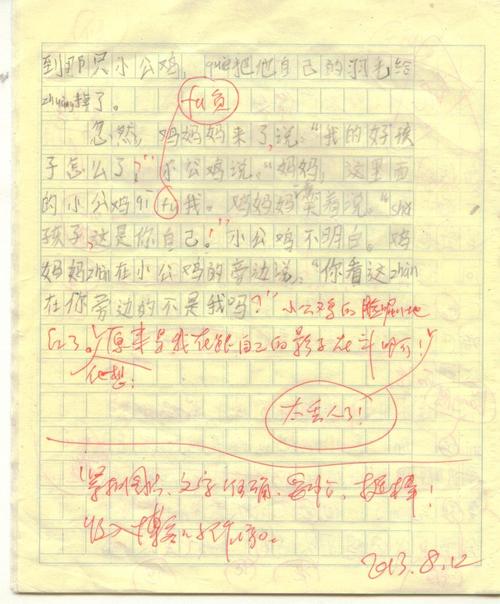 到那只小公鸡，què把他自己的羽毛给
zhuàng掉了。
fu负
忽然，鸡妈妈来了，说：“我的好孩
子怎么了？”小公鸡说：“妈妈，这里面
的小公鸡qī fu我。鸡妈妈笑着说：“shǎ
孩子，这是你自己！”小公鸡不明白。鸡
妈妈zhàn在小公鸡的旁边说：“你看这zhàn
在你旁边的不是我吗？”小公鸡的脸唰地
红了。原来是我在跟自己的影子在斗啊！
他想：
太丢人了！
文字准确、挺棒！
收入博客
2013.8.12